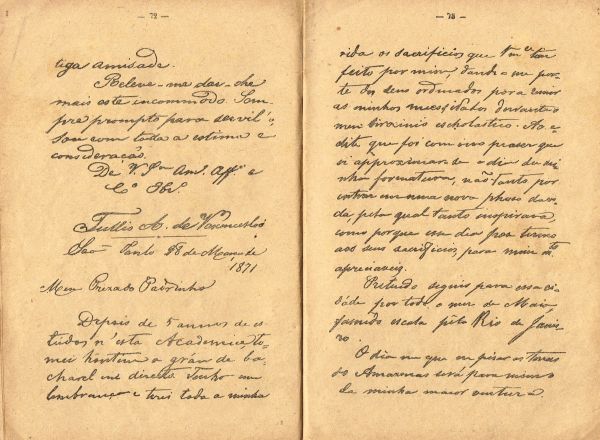 — 72 —
tiga amisade.
Releve-me dar-lhe
mais este incommodo. Sem
pre prompto para servil-o
sou com toda a estima e
consideração.
De V. Sa Amo. Affo. e
Co. Obro.
Tullio A. de Vasconcellos
São Paulo 28 de Março de
1871
Meu Prezado Padrinho
Depois de 5 annos de es
tudos n'esta Academia to-
mei hontem o grau de ba-
charel em direito. Tenho em
lembrança e terei toda a minha
— 73 —
vida os sacrificios que tem
feito por mim dando-me par-
te de seus ordenados para
as minhas necessidades durante o
meu tirocinio escholastico. Acre-
dite que foi com vivo prazer que
vi approximar-se o dia de mi
nha formatura, não tanto por
entrar em uma nova phase da vi
da, pela qual tanto aspirava,
como porque esse dia poz termo
aos seus sacrificios, para mim
apreciaveis.
Pretendo seguir para essa ci
dade por todo o mez de Maio,
fazendo escala pelo Rio de Janei
ro.
O dia em que eu pisar as terras
do Amazonas será para mim o
da minha maior ventura.